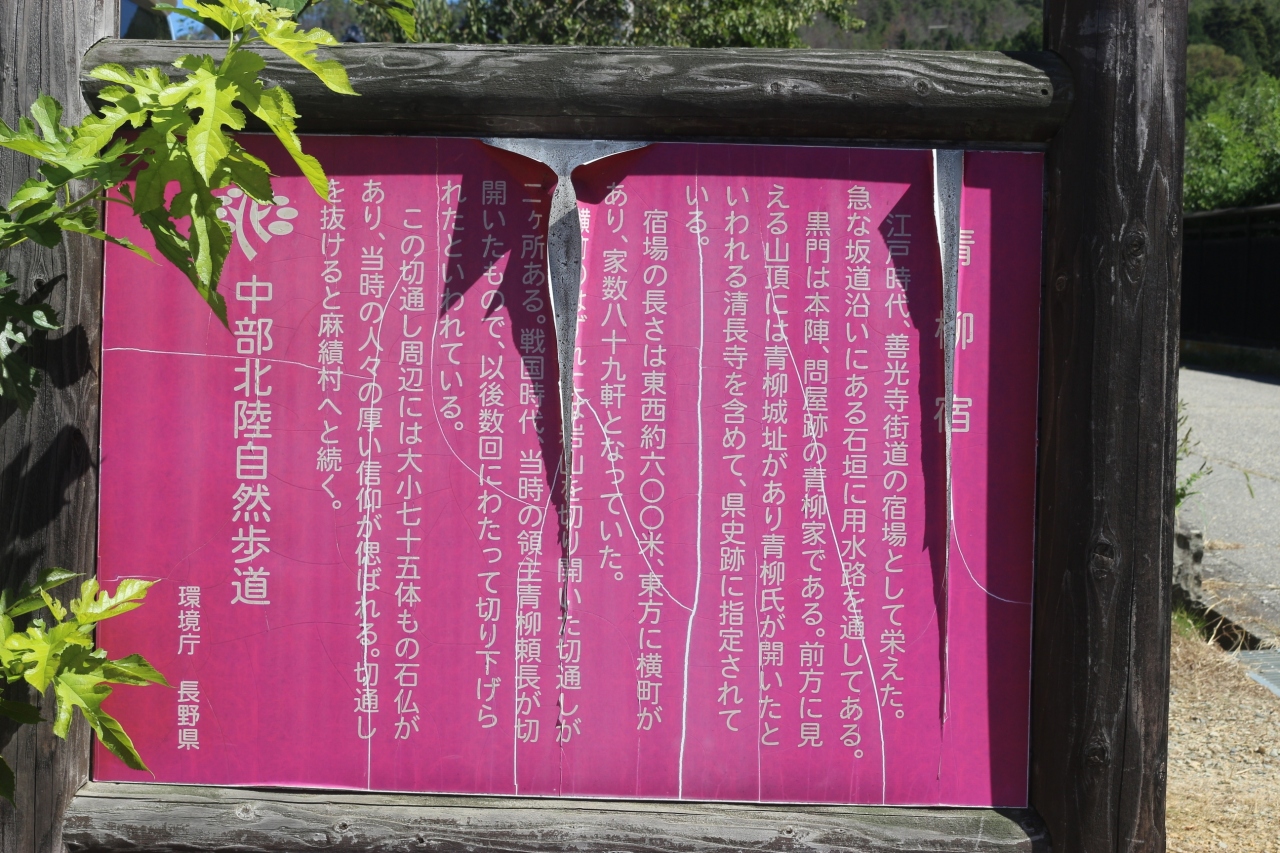 青柳宿
江戸時代、善光寺街道の宿場として栄えた。
急な坂道沿いにある石垣に用水路を通してある。
黒門は本陣、問屋跡の青柳家である。前方に見
える山頂には青柳城址があり青柳氏が開いたと
いわれる清長寺を含めて、県史跡に指定されて
いる。
宿場の長さは東西約六〇〇米、東方に横町が
あり、家数八十九軒となっていた。
横町のはずれには岩山を切り開いた切通しが
二ヶ所ある。戦国時代、当時の領主青柳頼長が切
開いたもので、以後数回にわたって切り下げら
れたといわれている。
この切通し周辺には大小七十五体もの石仏が
あり、当時の人々の厚い信仰が偲ばれる。切通し
を抜けると麻績村へと続く。
中部北陸自然歩道
環境庁 長野県